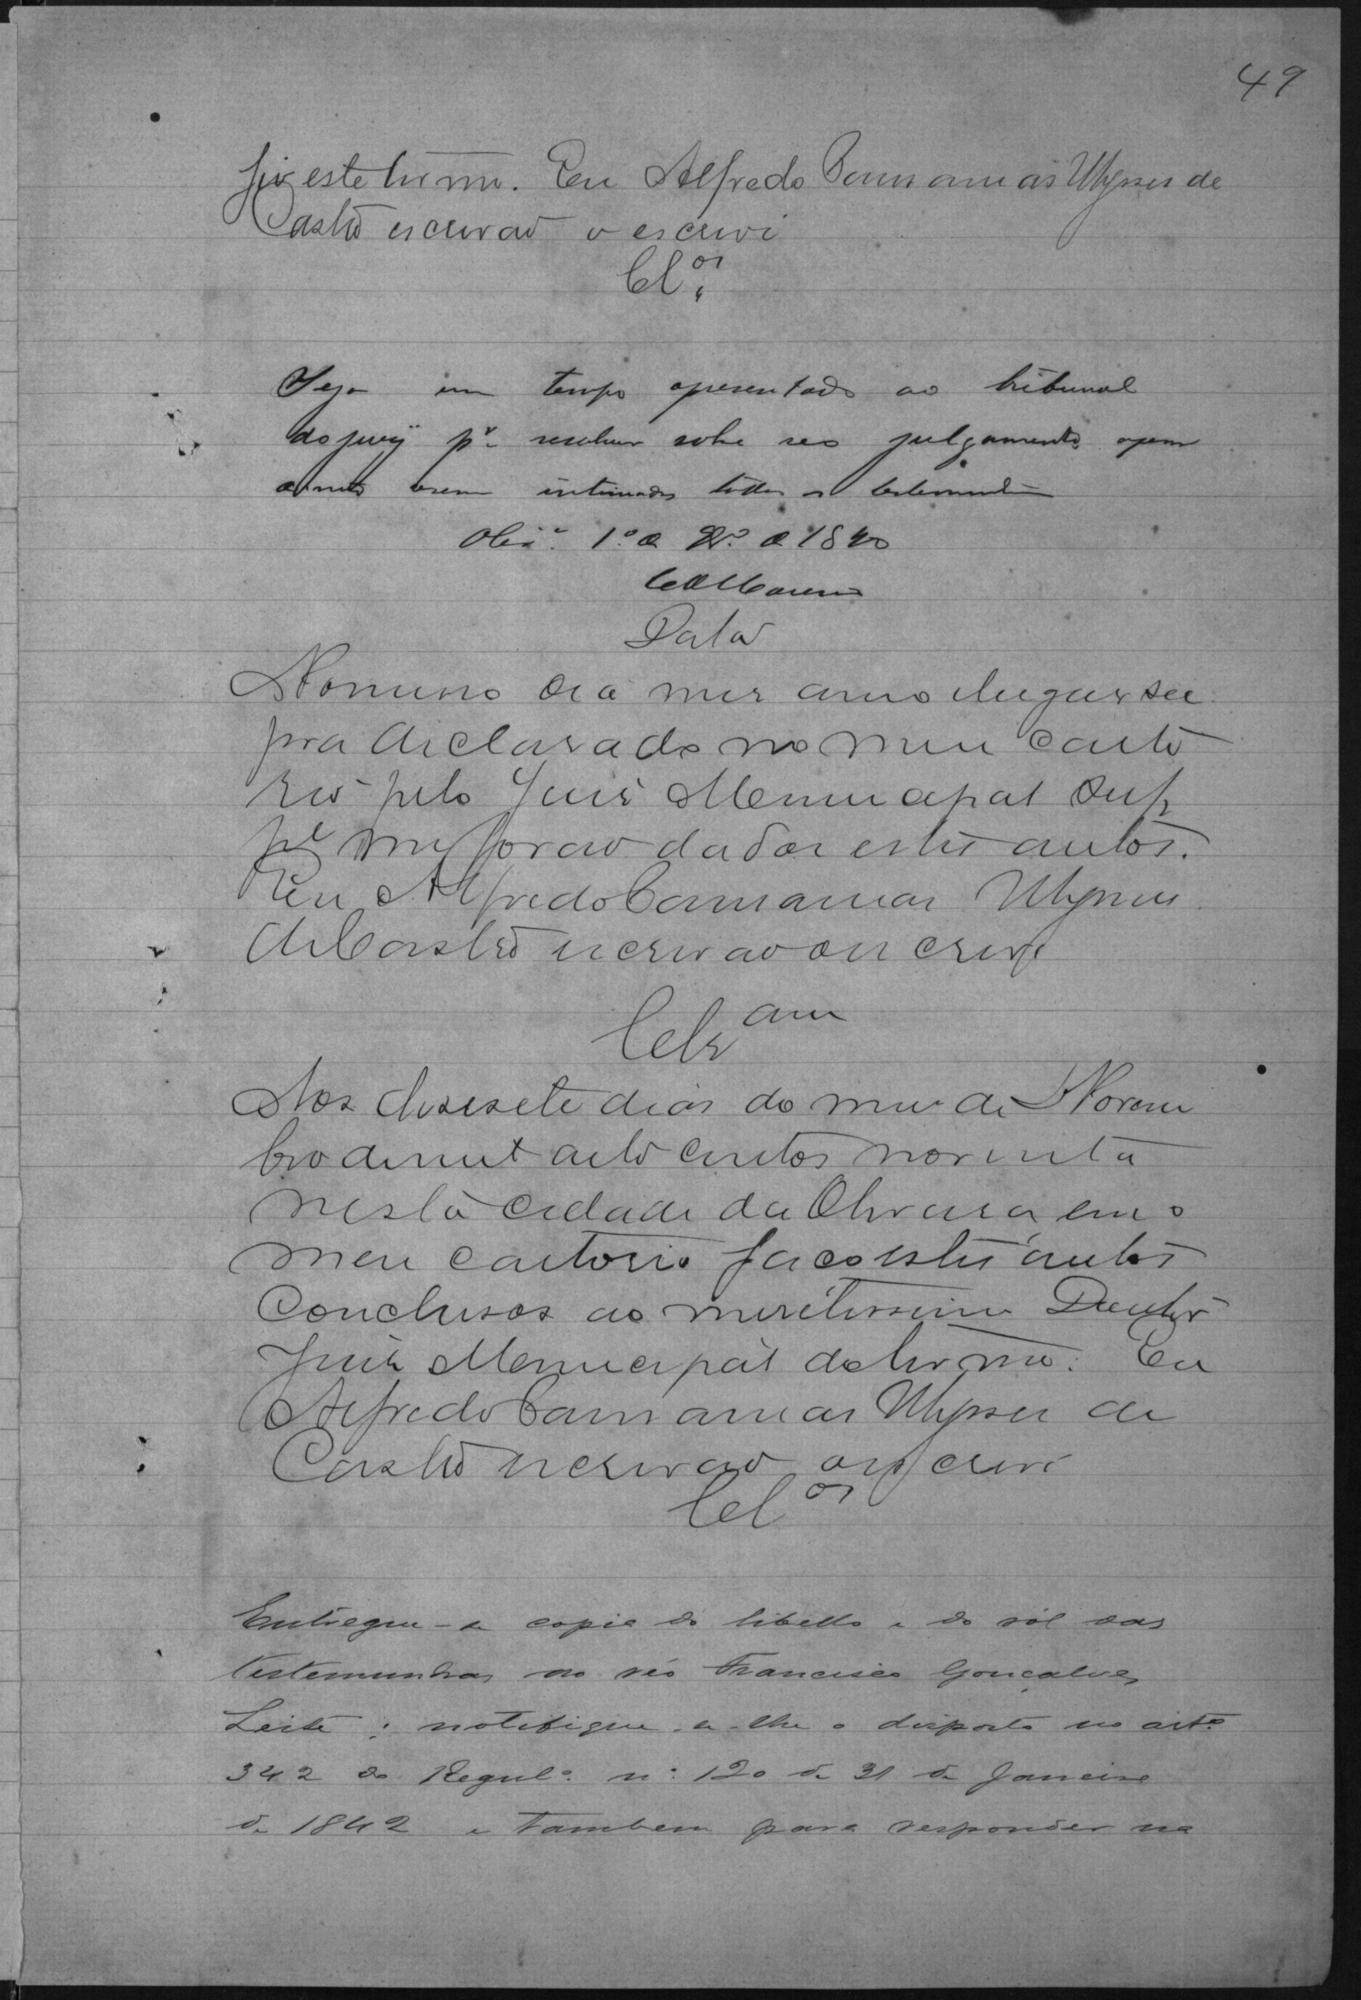 49
fiz este termo. Eu Alfredo Camarneas Ulysses de
Castro escrivaõ o escrivi
Cl.os
Seja em tempo apresentado ao tribunal
do jury pª resolver sobre seo julgamento
intimadas todas as testemunhas
Olivª. 1º de de 1890
Data
No mesmo dia mes anno e lugar su
pra declarado no meu carto
rio pelo Juis Municipal Sup
pe me foraõ dados estes autos.
Eu Alfredo Camarneas Ulysses
de Castro escrivaõ o escrivi
Clsam
Aos desesete dias do mes de Novem
bro de mil oito centos noventa
nesta cidade da Oliveira em o
meu cartorio faço estes autos
Conclusos ao meretissimo Doutor
Juis Municipal do termo. Eu
Alfredo Camarneas Ulysses de
Castro escrivaõ o escrivi
Clos
Entregue-se copia do libello e do rol das
testemunhas ao réo Francisco Gonçalves
Leite; notifique-se-lhe o disposto no artº
342 do Regulº. nº. 120 de 31 de Janeiro
de 1842 e tambem para responder na